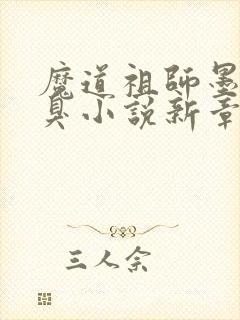 魔道祖師墨
臭小說新章
三人余